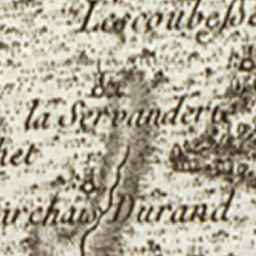 Lescoubesse
la Servanderie
het
irchais Durand